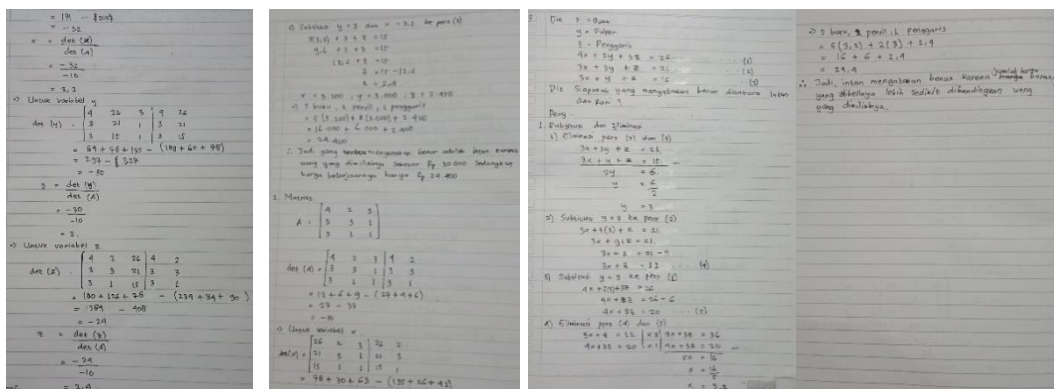 = 171 - {203}
= -32
x = det (x)
det (A)
= -32
-10
= 3,2
=) Untuk variabel y
det (y) = 4 26 3 4 26
3 21 1 3 21
3 15 1 3 15
= -30
y = det (y)
det (A)
= -30
-10
= 3
=) Untuk variabel z
det (z) = 4 2 26 4 2
3 3 21 3 3
3 1 15 3 1
= 180 + 126 + 78 - (234 + 84 + 90)
= 384 - 408
= -24
z = det (z)
det (A)
= -24
-10
= 2,4
Subtitusi y = 3 dan x = 3,2 ke pers (3)
3(3,2) + 3 + z = 15
9,6 + 3 + z = 15
12,6 + z = 15
z = 15 - 12,6
z = 2,4
x = 3.200, y = 3.000, z = 2.400
=) 5 buku, 2 pensil, 1 penggaris
= 5 (3.200) + 2 (3.000) + 2.400
= 16.000 + 6.000 + 2.400
= 24.400
∴ Jadi yang mengatakan benar adalah Intan karena
uang yang dimilikinya sebesar Rp 30.000 sedangkan
harga belanjaannya hanya Rp 24.400
2. Matriks
A = 4 2 3
3 3 1
3 1 1
det (A) = 4 2 3 4 2
3 3 1 3 3
3 1 1 3 1
= 12 + 6 + 9 - (27 + 4 + 6)
= 27 - 37
= -10
=) Untuk variabel x
det(x) = 26 2 3 26 2
21 3 1 21 3
15 1 1 15 1
= 78 + 30 + 63 - (135 + 26 + 42)
Dik x = Buku
y =
z = Penggaris
4x + 2y + 3z = 26 ... (1)
3x + 3y + z = 21 ... (2)
3x + y + z = 15 ... (3)
Dit Siapakah yang mengatakan benar diantara Intan
dan ?
Peny
1. Subtitusi dan Eliminasi
1) Eliminasi pers (2) dan (3)
3x + 3y + z = 21
3x + y + z = 15 -
2y = 6
y = 6
2
y = 3
2) Subtitusi y = 3 ke pers (2)
3x + 3(3) + z = 21
3x + 9 + z = 21
3x + z = 21 - 9
3x + z = 12 ... (4)
3) Subtitusi y = 3 ke pers (1)
4x + 2(3) + 3z = 26
4x + 3z = 26 - 6
4x + 3z = 20 ... (5)
4) Eliminasi pers (4) dan (5)
3x + z = 12 | x3 | 9x + 3z = 36
4x + 3z = 20 | x1 | 4x + 3z = 20 -
5x = 16
x = 16
5
x = 3,2
=) 5 buku, 2 pensil, 1 penggaris
= 5 (3,2) + 2 (3) + 2,4
= 16 + 6 + 2,4
= 24,4
∴ Jadi, intan mengatakan benar karena jumlah harga
yang dibelinya lebih sedikit dibandingkan uang
yang dimilikinya.